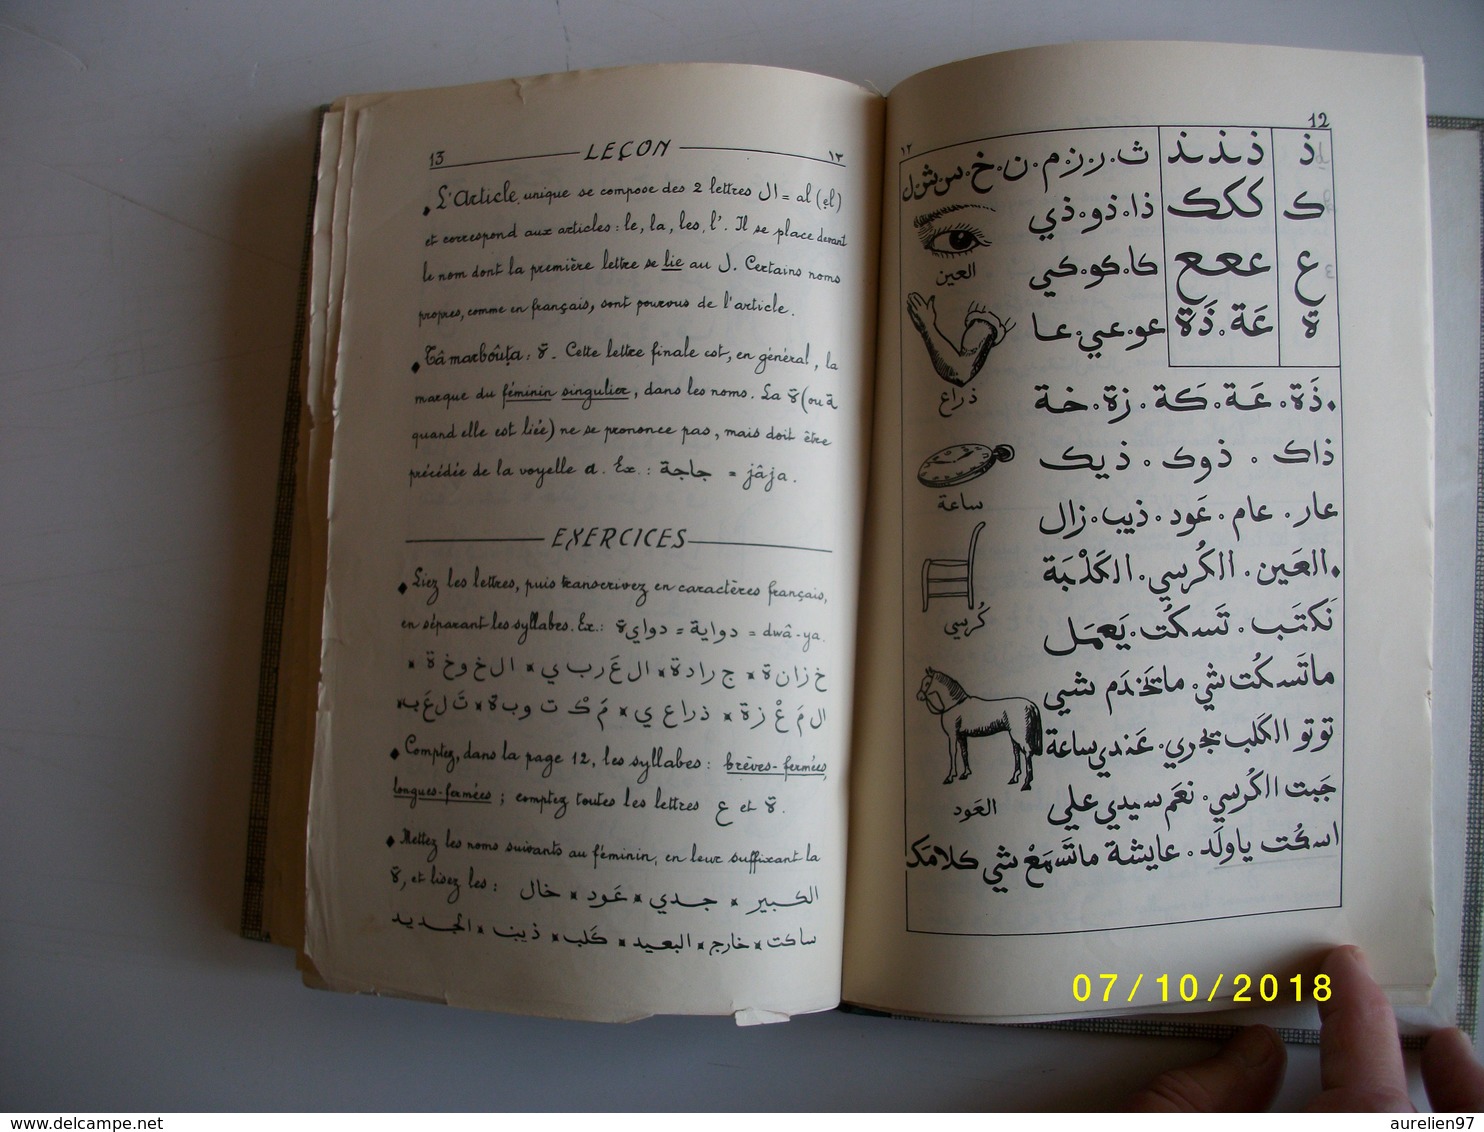 13 LEÇON ١٣
L'Article, unique se compose des 2 lettres ال = al (el)
et correspond aux articles : le, la, les, l'. Il se place devant
le nom dont la première lettre se lie au J. Certains noms
propres, comme en français, sont pourvus de l'article.
Tâ marboûṭa : ة. Cette lettre finale est, en général, la
marque du féminin singulier, dans les noms. La ة (ou ـة
quand elle est liée) ne se prononce pas, mais doit être
précédée de la voyelle a. Ex. : جاجة = jâja.
EXERCICES
Liez les lettres, puis transcrivez en caractères français,
en séparant les syllabes. Ex. : دواي ة = دواية = dwâ-ya.
خ زان ة × ج رادة × ال عَ رب ي × ال خ وخ ة ×
ال مَ عْ زة × ذراع ي × مَ كْ ت وب ة × تَ ل عَ ب ×
Comptez, dans la page 12, les syllabes : brèves-fermées,
longues-fermées ; comptez toutes les lettres ع et ة.
Mettez les noms suivants au féminin, en leur suffixant la
ة, et lisez les : الكبير × جدي × عَود × خال
ساكت × خارج × البعيد × كَلب × ذيب × الجديد
12
١٢
ذ
ذ ذ ذ
ث . ر . ز . م . ن . خ . س . ش . ل
ك
ككك
ذا . ذو . ذي
العين
ع
ععع
كا . كو . كي
ة
عَة . ذَة
عو . عي . عا
ذراع
ذَة . عَة . كَة . زة . خة
ذاك . ذوك . ذيك
ساعة
عار . عام . عَود . ذيب . زال
العَين . الكُرسي . الكَذْبَة
كُرسي
نَكتَب . تَسكُت . يَعمَل
ماتَسكُت شي . ماتَخْدَم شي
توتو الكَلب يجري . عَندي ساعة
العَود
جَبت الكُرسي . نعَم سيدي علي
اسكُت ياولَد . عايشة ماتَسمَعْ شي كلامَك
07/10/2018
aurelien97